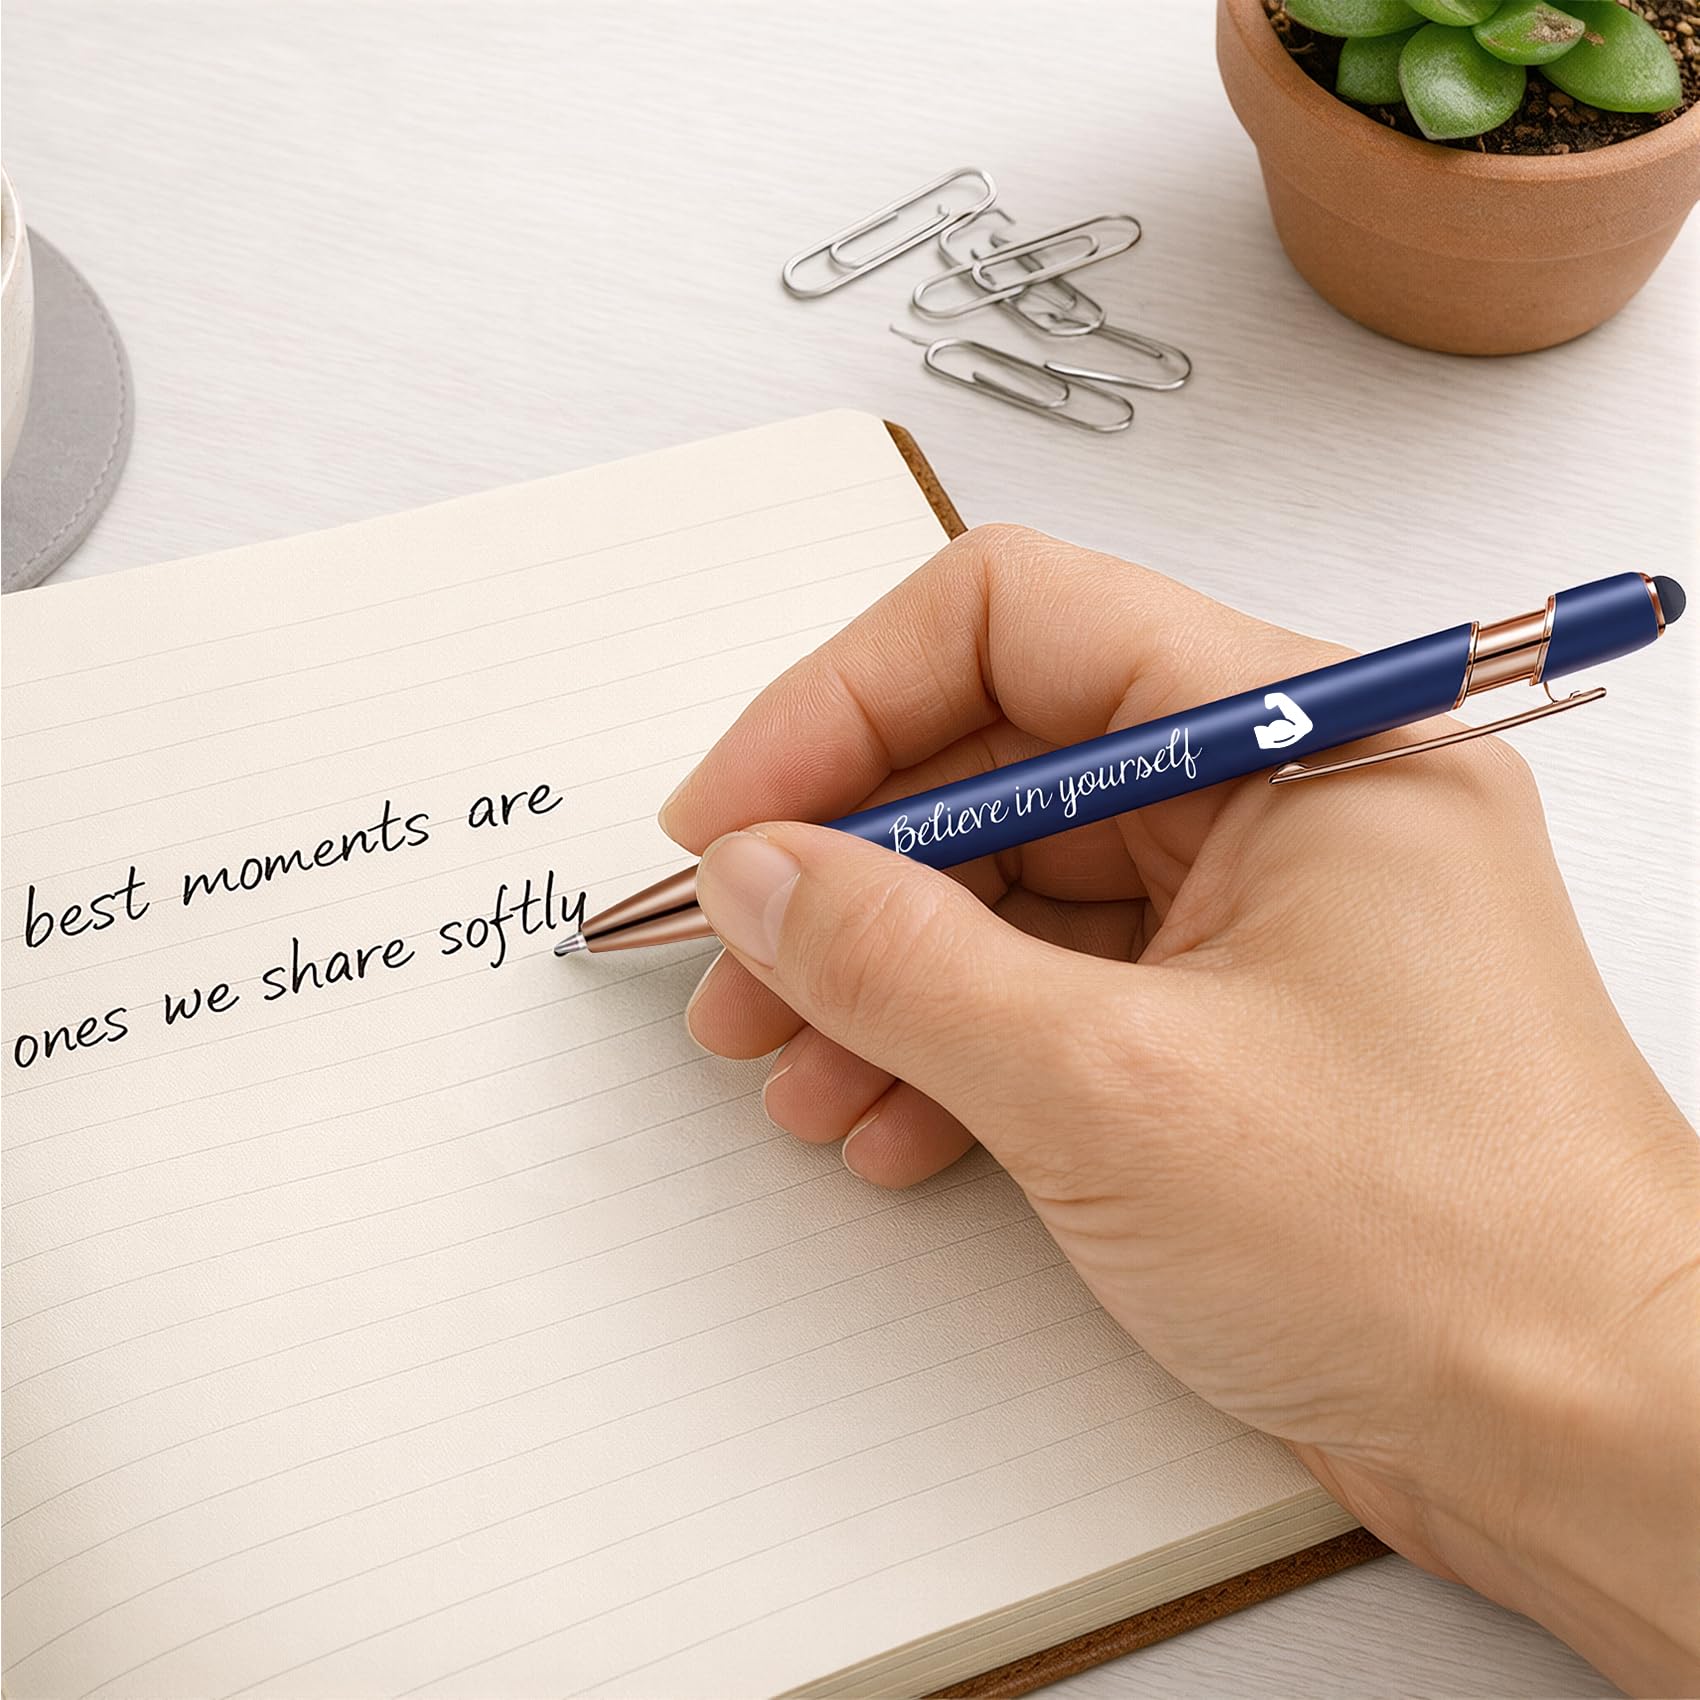 best moments are
ones we share softly
Believe in yourself